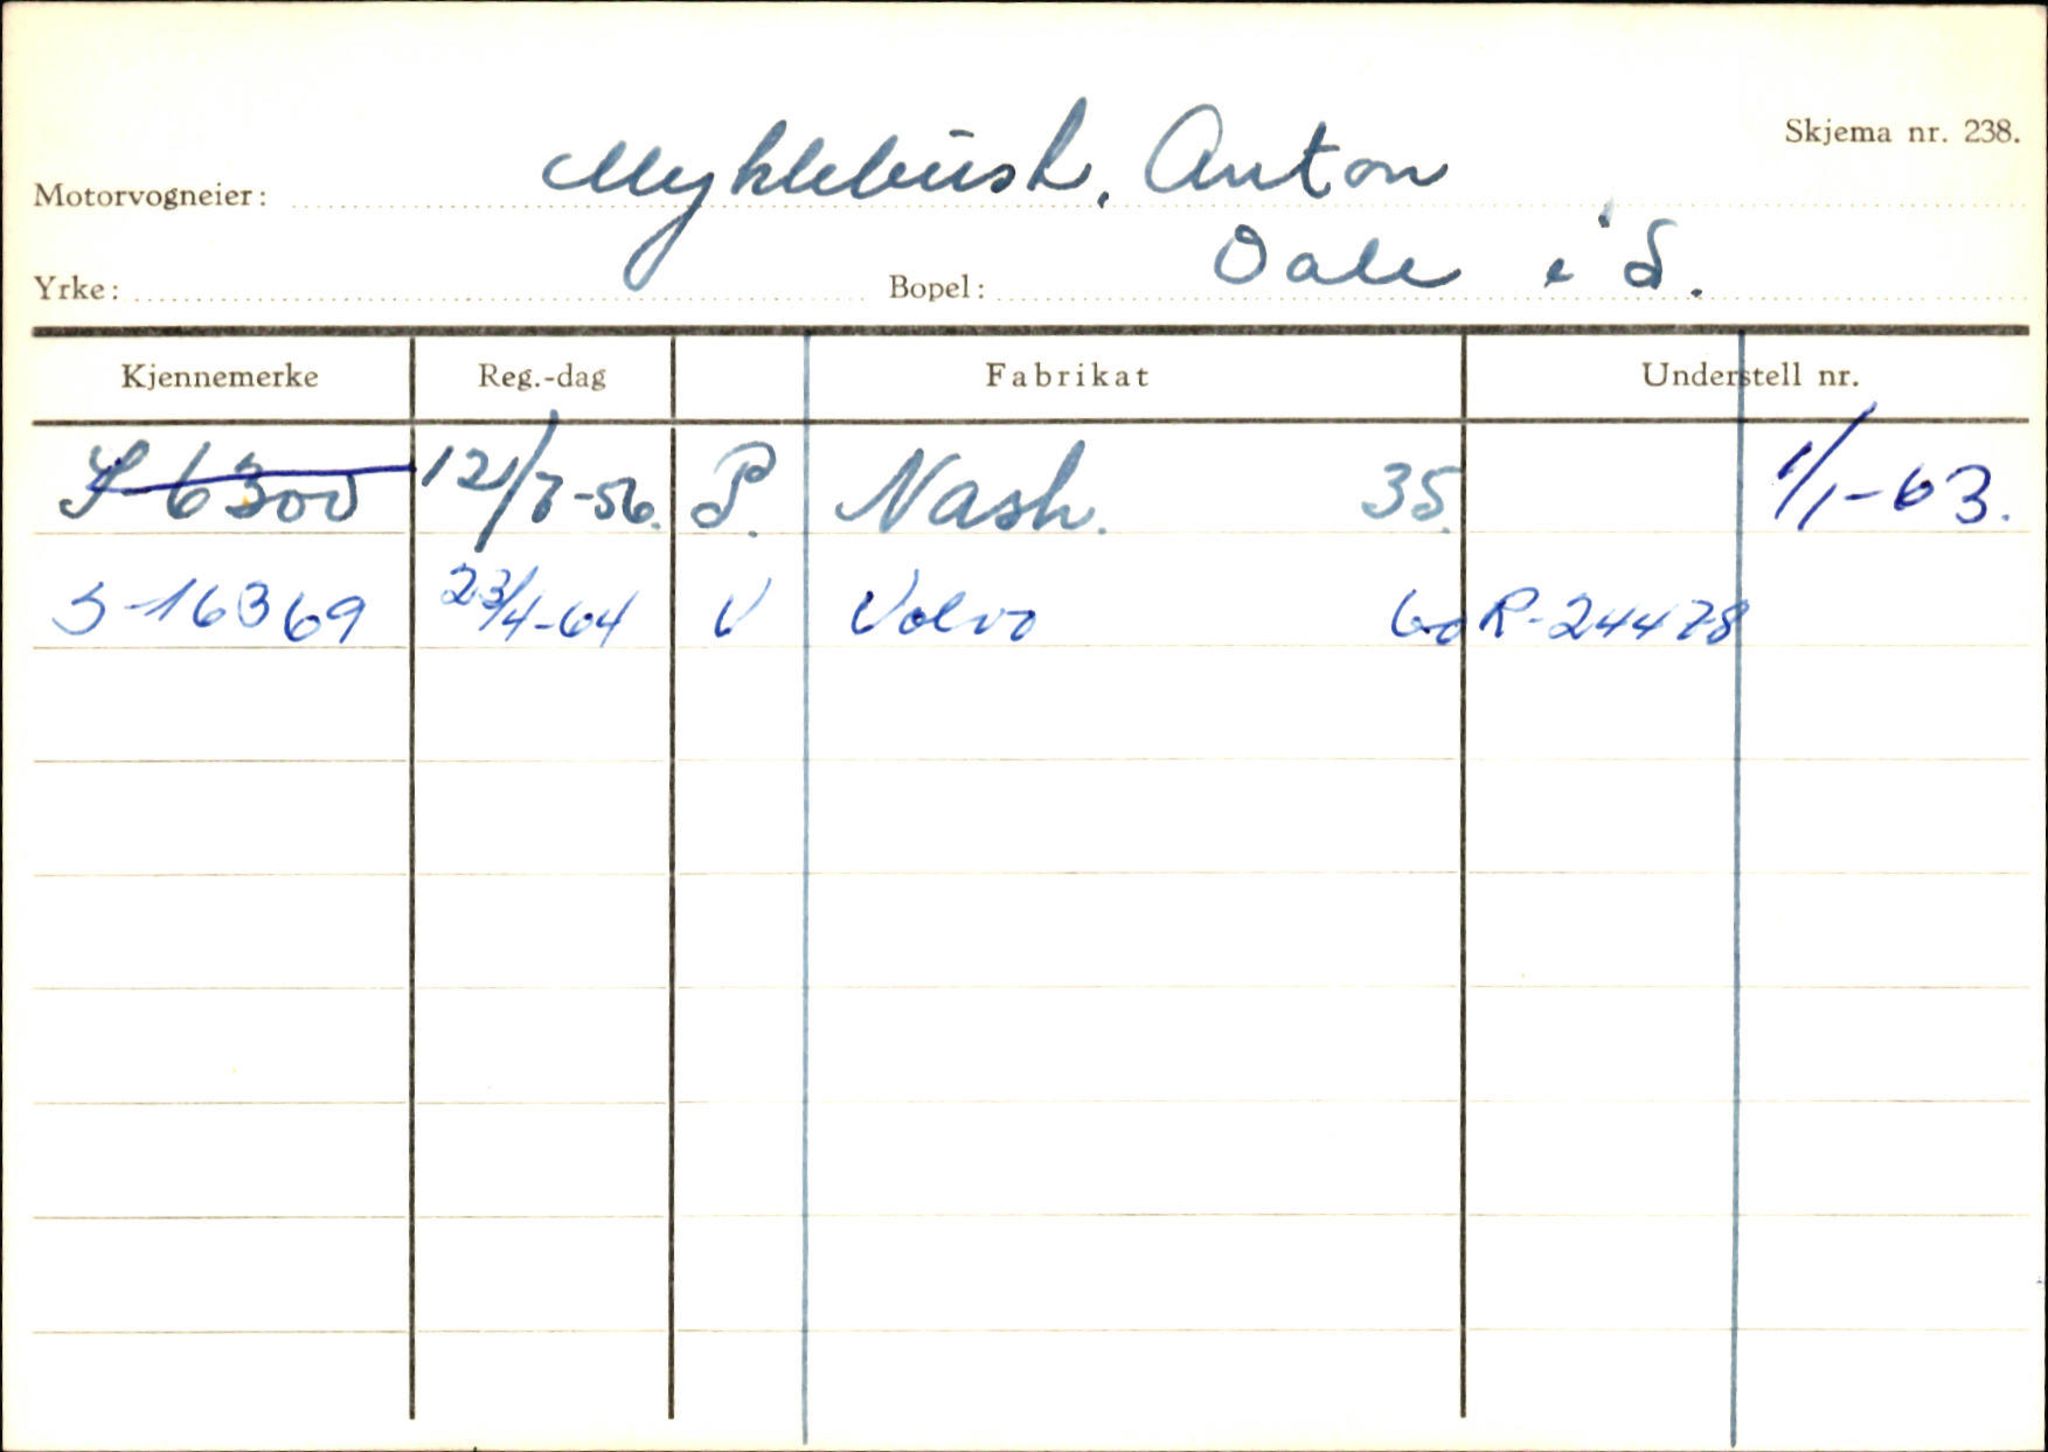 Skjema nr. 238.
Motorvogneier: Myklebust, Anton
Yrke: Bopel: Dale i S.
Kjennemerke Reg.-dag Fabrikat Understell nr.
S-6300 12/7-56. P. Nash. 35. 1/1-63.
S-16369 23/4-64 V Volvo 60 R-24478